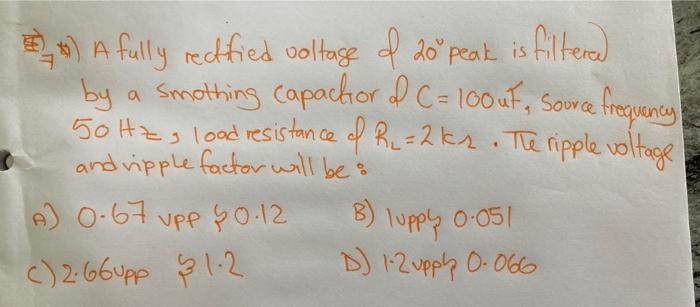 A fully rectified voltage of 20v peak is filtered
by a smothing capacitor of C = 100uF, source frequency
50 Hz, load resistance of RL = 2kΩ. The ripple voltage
and ripple factor will be:
A) 0.67 vpp & 0.12 B) 1upp & 0.051
C) 2.66upp & 1.2 D) 1.2upp & 0.066